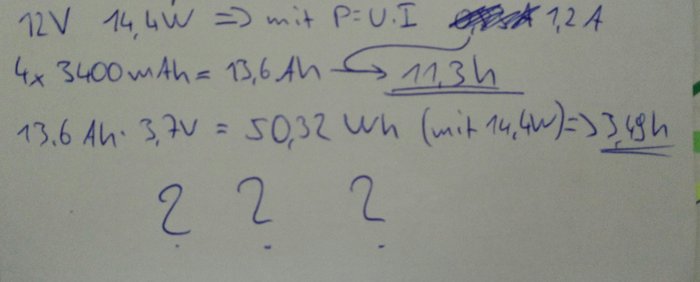 12V 14,4W => mit P=U.I 1,2A
4x 3400mAh = 13,6Ah → 11,3h
13.6 Ah · 3,7V = 50,32 Wh (mit 14,4W) => 3,49h
? ? ?